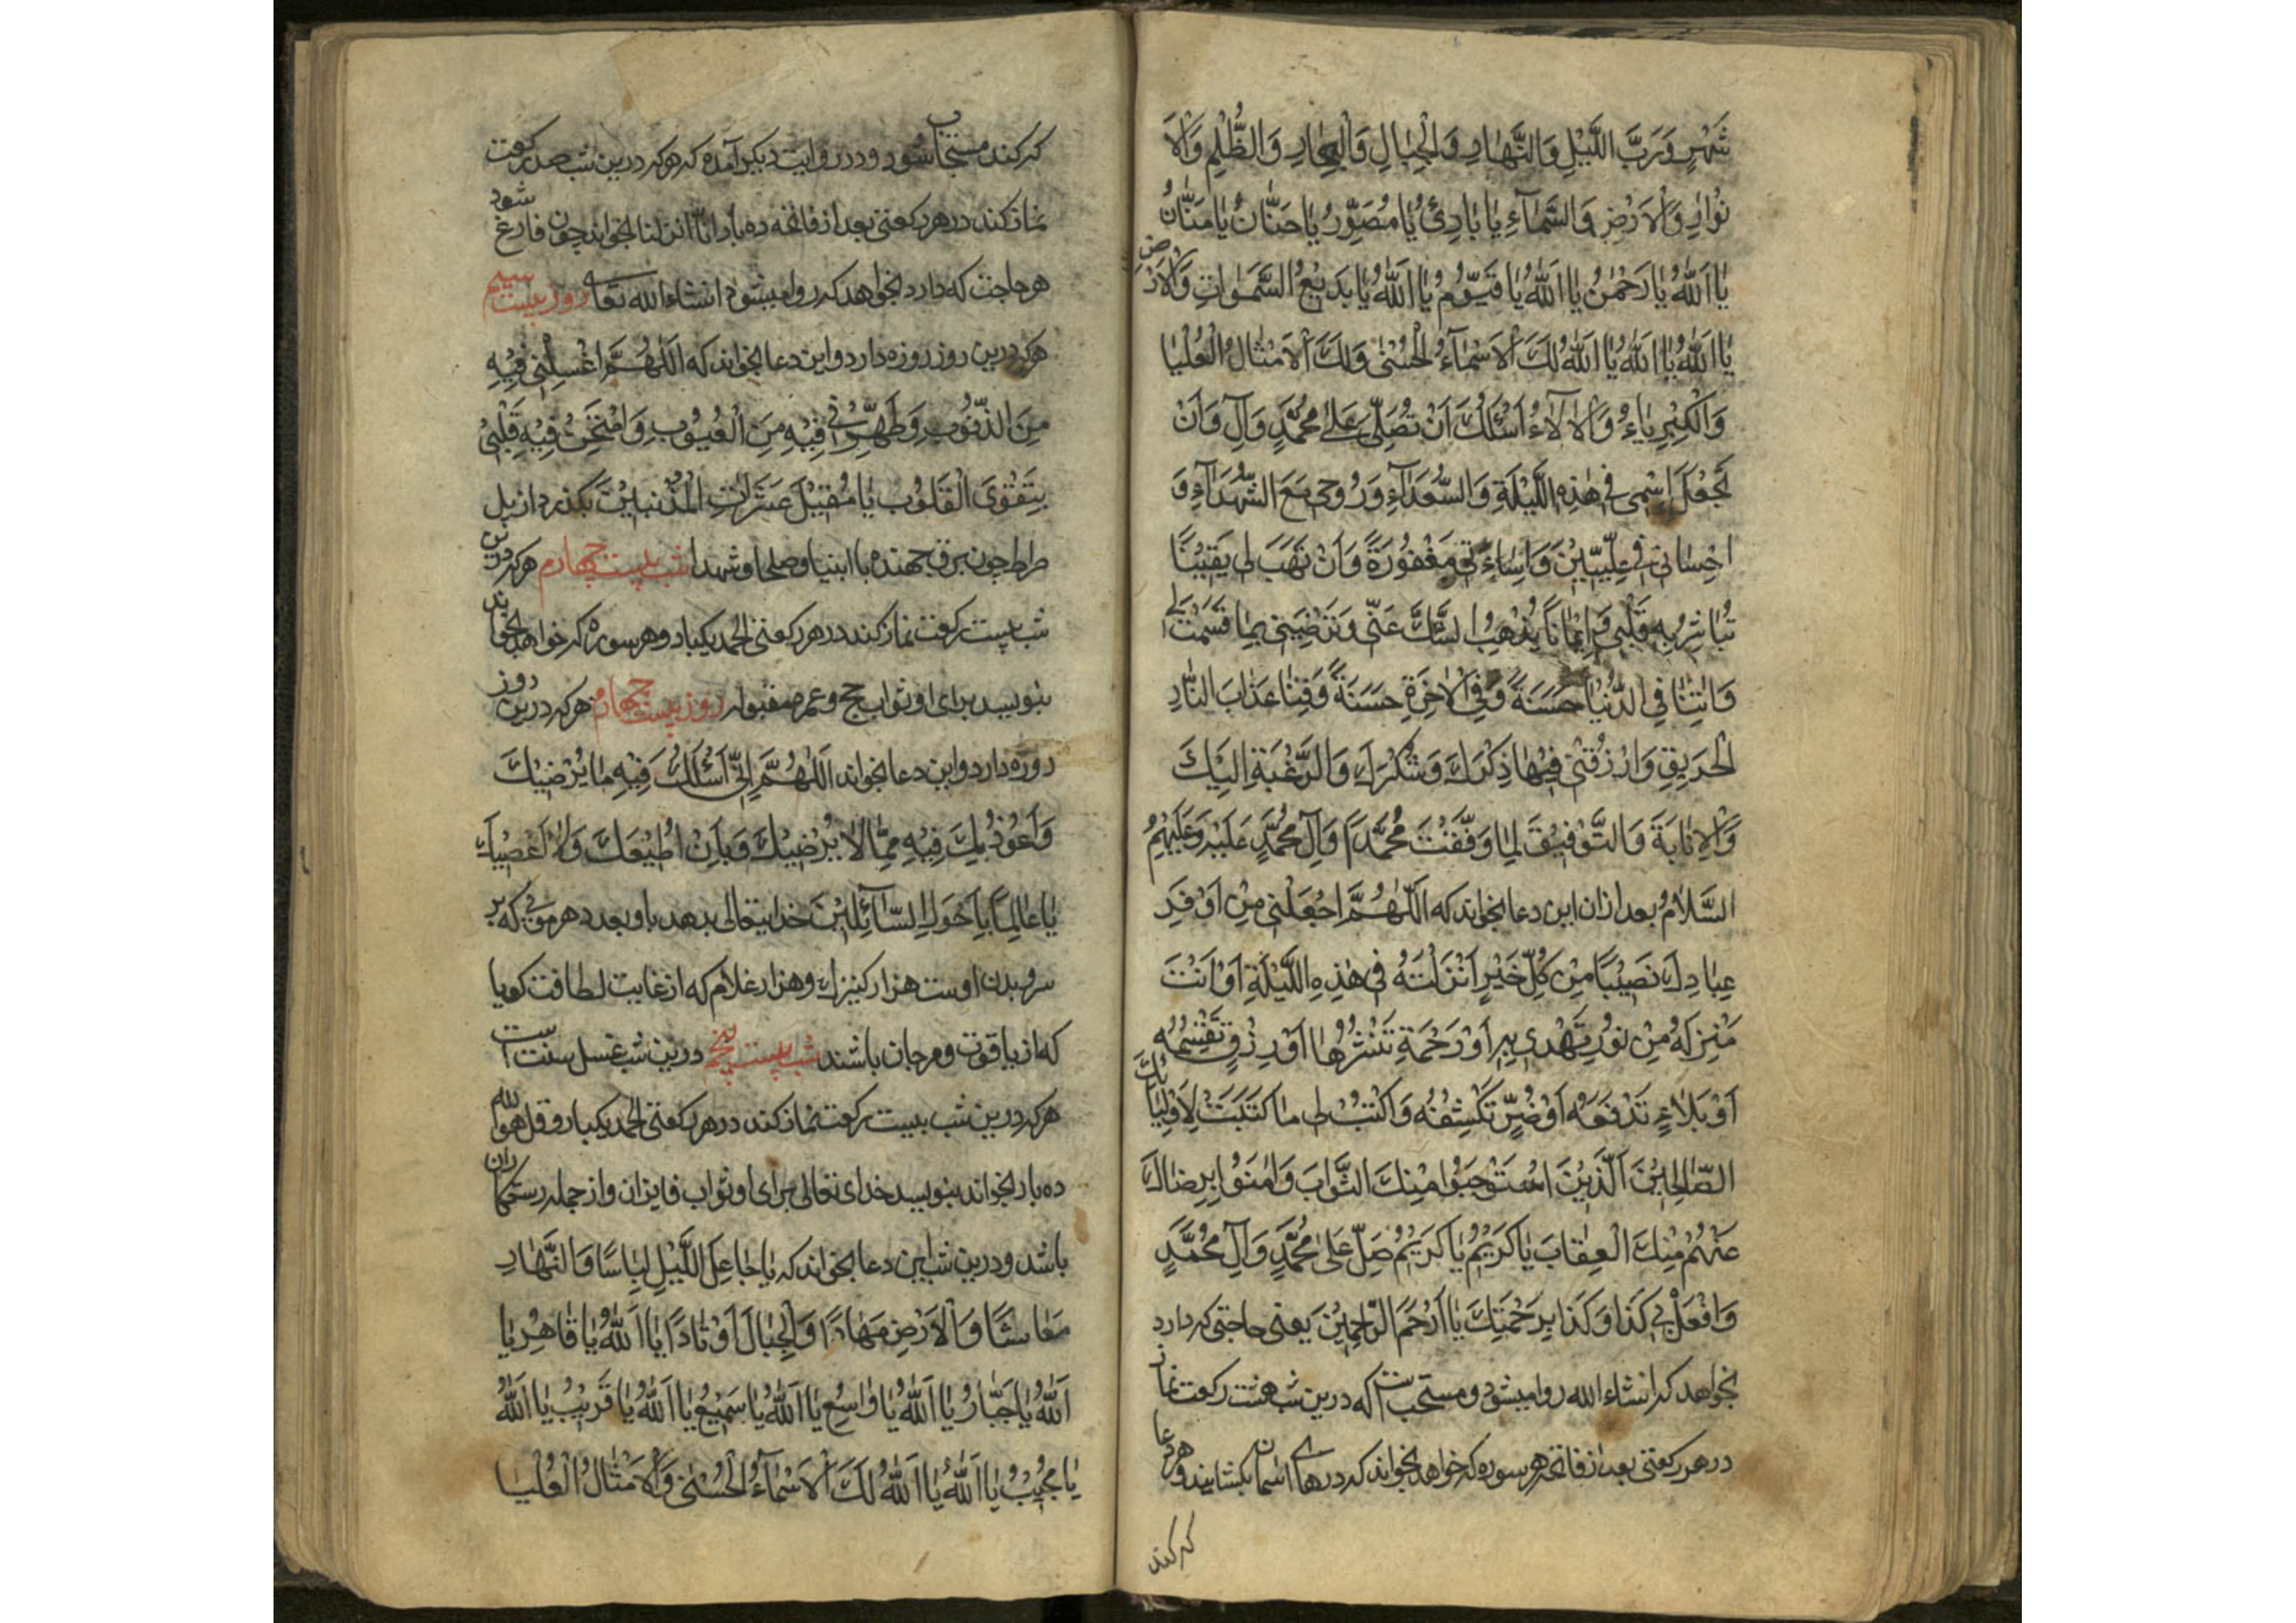 شَهْرٍ وَرَبَّ اللَّيْلِ وَالنَّهَارِ وَالْجِبَالِ وَالْبِحَارِ وَالظُّلَمِ وَالْاَ
نْوَارِ وَالْاَرْضِ وَالسَّمَاءِ يَا بَارِئُ يَا مُصَوِّرُ يَا حَنَّانُ يَا مَنَّانُ
يَا اَللّٰهُ يَا رَحْمٰنُ يَا اَللّٰهُ يَا قَيُّومُ يَا اَللّٰهُ يَا بَدِيعُ السَّمٰوَاتِ وَالْاَرْضِ
يَا اَللّٰهُ يَا اَللّٰهُ يَا اَللّٰهُ لَكَ الْاَسْمَاءُ الْحُسْنٰى وَلَكَ الْاَمْثَالُ الْعُلْيَا
وَالْكِبْرِيَاءُ وَالْاٰلَاءُ اَسْئَلُكَ اَنْ تُصَلِّيَ عَلٰى مُحَمَّدٍ وَآلِ وَاَنْ
تَجْعَلَ اِسْمِي فِي هٰذِهِ اللَّيْلَةِ وَالسُّعَدَاءِ وَرُوحِي مَعَ الشُّهَدَاءِ وَ
اِحْسَانِي فِي عِلِّيِّينَ وَاِسَاءَتِي مَغْفُورَةً وَاَنْ تَهَبَ لِي يَقِينًا
تُبَاشِرُ بِهِ قَلْبِي وَاِيمَانًا يُذْهِبُ الشَّكَّ عَنِّي وَتُرْضِيَنِي بِمَا قَسَمْتَ لِي
وَاٰتِنَا فِي الدُّنْيَا حَسَنَةً وَفِي الْاٰخِرَةِ حَسَنَةً وَقِنَا عَذَابَ النَّارِ
الْحَرِيقِ وَارْزُقْنِي فِيهَا ذِكْرَكَ وَشُكْرَكَ وَالرَّغْبَةَ اِلَيْكَ
وَالْاِنَابَةَ وَالتَّوْفِيقَ لِمَا وَفَّقْتَ مُحَمَّدًا وَآلَ مُحَمَّدٍ عَلَيْهِ وَعَلَيْهِمُ
السَّلَامُ بعد ازان این دعا بخواند که اَللّٰهُمَّ اجْعَلْنِي مِنْ اَوْفَرِ
عِبَادِكَ نَصِيبًا مِنْ كُلِّ خَيْرٍ اَنْزَلْتَهُ فِي هٰذِهِ اللَّيْلَةِ اَوْ اَنْتَ
مُنْزِلُهُ مِنْ نُورٍ تَهْدِي بِهِ اَوْ رَحْمَةٍ تَنْشُرُهَا اَوْ رِزْقٍ تَقْسِمُهُ
اَوْ بَلَاءٍ تَدْفَعُهُ اَوْ ضُرٍّ تَكْشِفُهُ وَاكْتُبْ لِي مَا كَتَبْتَ لِاَوْلِيَائِكَ
الصَّالِحِينَ الَّذِينَ اسْتَوْجَبُوا مِنْكَ الثَّوَابَ وَاٰمَنُوا بِرِضَاكَ
عَنْهُمْ مِنْكَ الْعِقَابَ يَا كَرِيمُ يَا كَرِيمُ صَلِّ عَلٰى مُحَمَّدٍ وَآلِ مُحَمَّدٍ
وَافْعَلْ بِي كَذَا وَكَذَا بِرَحْمَتِكَ يَا اَرْحَمَ الرَّاحِمِينَ یعنی حاجتی که دارد
بخواهد که انشاء الله روا میشود و مستحب است که درین شب هشت رکعت نماز
در هر رکعتی بعد از فاتحه هر سوره که خواهد بخواند که درهای آسمان بکشایند و هر دعا
که کند
که کند مستجاب شود و در روایت دیکر آمده که هر که درین شب صد رکعت
نماز کند در هر رکعتی بعد از فاتحه ده بار انا انزلنا بخواند چون فارغ شود
هر حاجت که دارد بخواهد که روا میشود انشاء الله تعالی روز بیست سیم
هر که درین روز روزه دارد و این دعا بخواند که اَللّٰهُمَّ اغْسِلْنِي فِيهِ
مِنَ الذُّنُوبِ وَطَهِّرْنِي فِيهِ مِنَ الْعُيُوبِ وَامْتَحِنْ فِيهِ قَلْبِي
بِتَقْوَى الْقُلُوبِ يَا مُقِيلَ عَثَرَاتِ الْمُذْنِبِينَ بکذرد از پل
صراط چون برق جهنده با انبیا و صلحا و شهدا شب بیست چهارم هر که درین
شب بیست رکعت نماز کند در هر رکعتی الحمد یکبار و هر سوره که خواهد بخواند
بنویسد برای او ثواب حج و عمره مقبول روز بیست چهارم هر که درین روز
روزه دارد و این دعا بخواند اَللّٰهُمَّ اِنِّي اَسْئَلُكَ فِيهِ مَا يُرْضِيكَ
وَاَعُوذُ بِكَ فِيهِ مِمَّا لَا يُرْضِيكَ وَبِاَنْ اُطِيعَكَ وَلَا اَعْصِيكَ
يَا عَالِمًا بِاَحْوَالِ السَّائِلِينَ خدایتعالی بدهد باو بعدد هر موی که بر
سر و بدن اوست هزار کنیزک و هزار غلام که از غایت لطافت کویا
که از یاقوت و مرجان باشند شب بیست پنجم درین شب غسل سنت است
هر که درین شب بیست رکعت نماز کند در هر رکعتی الحمد یکبار و قل هو الله
ده بار بخواند بنویسد خدای تعالی برای او ثواب فایزان و از جمله رستکاران
باشد و درین شب این دعا بخواند که يَا جَاعِلَ اللَّيْلِ لِبَاسًا وَالنَّهَارِ
مَعَاشًا وَالْاَرْضِ مِهَادًا وَالْجِبَالَ اَوْتَادًا يَا اَللّٰهُ يَا قَاهِرُ يَا
اَللّٰهُ يَا جَبَّارُ يَا اَللّٰهُ يَا وَاسِعُ يَا اَللّٰهُ يَا سَمِيعُ يَا اَللّٰهُ يَا قَرِيبُ يَا اَللّٰهُ
يَا مُجِيبُ يَا اَللّٰهُ يَا اَللّٰهُ لَكَ الْاَسْمَاءُ الْحُسْنٰى وَالْاَمْثَالُ الْعُلْيَا